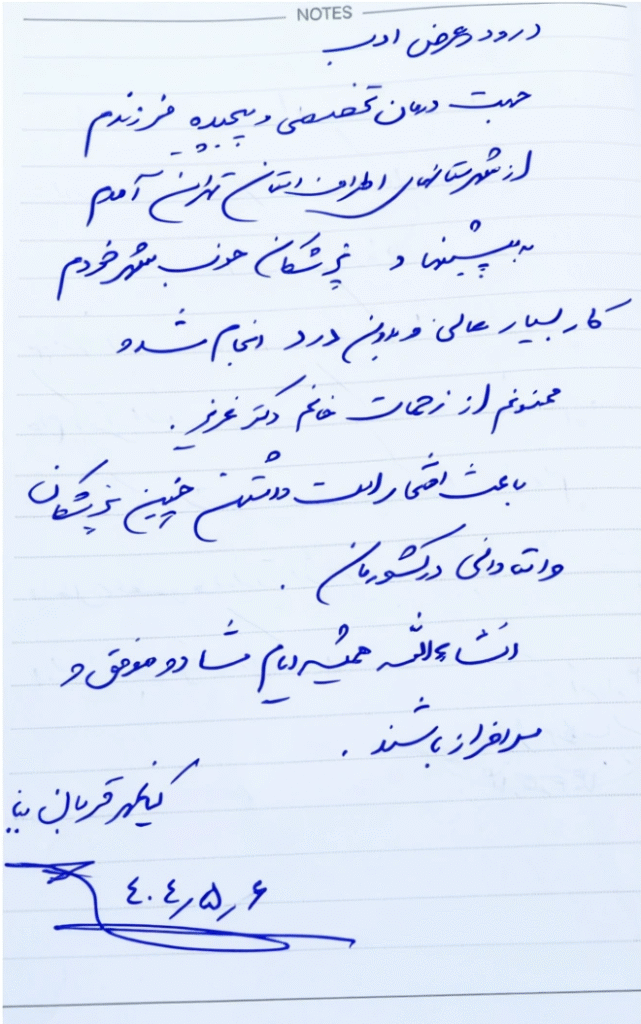 NOTES
درود و عرض ادب
جهت درمان تخصصی و پیچیده فرزندم
از شهرستانهای اطراف استان تهران آمدم
به پیشنهاد پزشکان خوب شهر خودم
کار بسیار عالی و بدون درد انجام شد و
ممنونم از زحمات خانم دکتر عزیز .
باعث افتخار است داشتن چنین پزشکان
و استادانی در کشورمان .
انشاءالله همیشه ایام شاد و موفق و
سرافراز باشند .
کیانمهر قربان نیا
۴۰۴٫۵٫۶